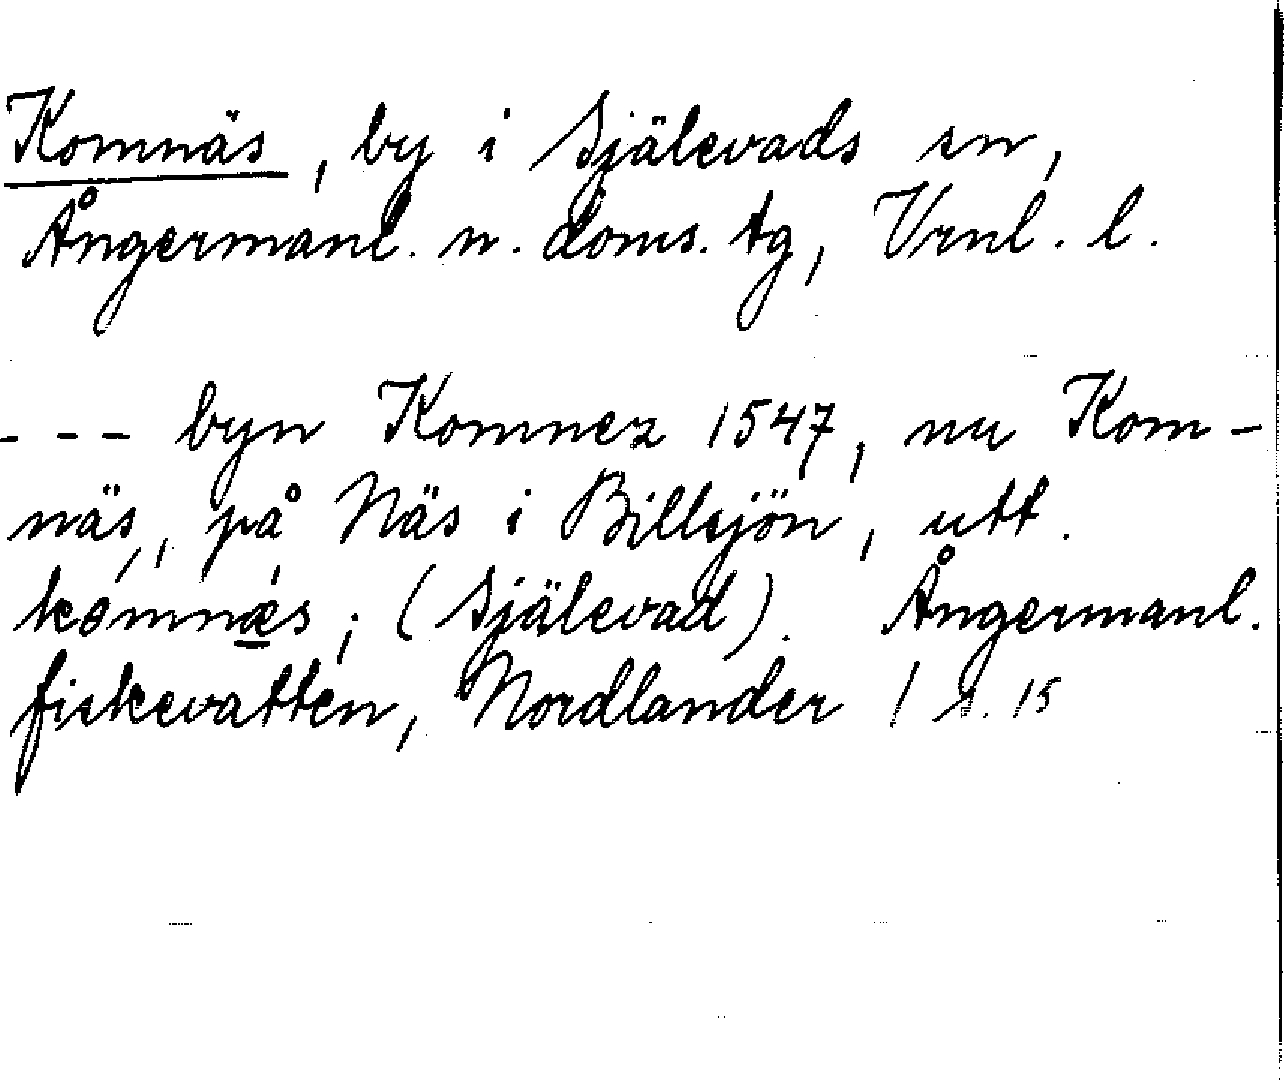 Komnäs, by i Själevads sn,
Ångermanl. n. doms. tg, Vrnl. l.
--- byn Komnez 1547, nu Kom-
näs, på Näs i Billsjön, utt.
komnæs; (Själevad). Ångermanl.
fiskevatten, Nordlander / s. 15